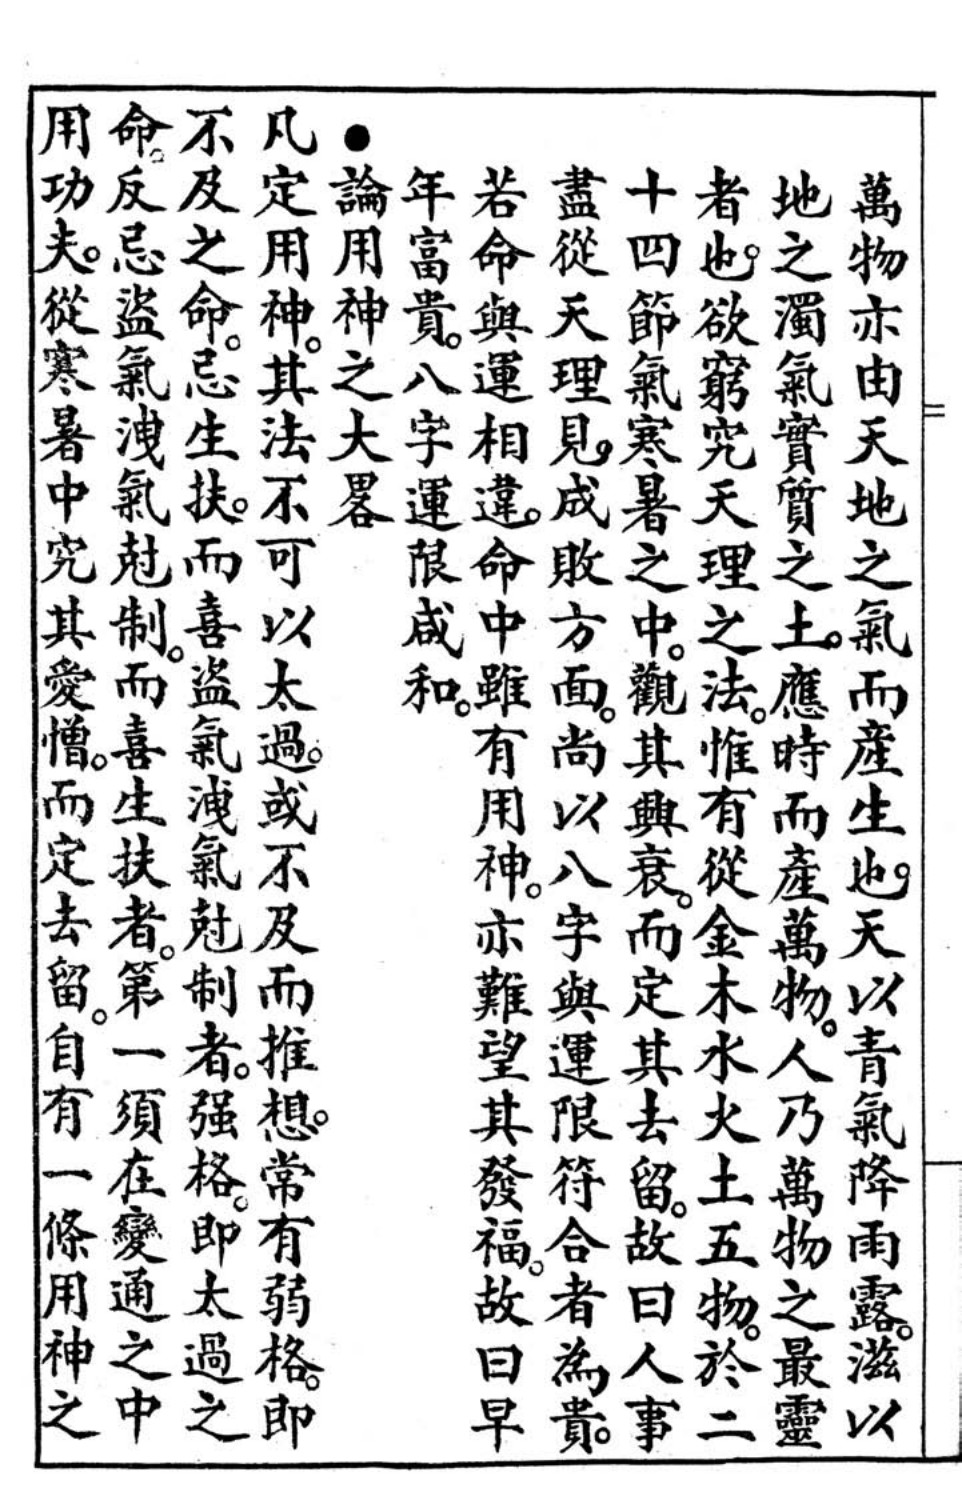 萬物亦由天地之氣而産生也。天以青氣降雨露。滋以
地之濁氣實質之土。應時而產萬物。人乃萬物之最靈
者也。欲窮究天理之法。惟有從金木水火土五物。於二
十四節氣寒暑之中。觀其興衰。而定其去留。故曰人事
盡從天理見。成敗方面。尚以八字與運限符合者為貴。
若命與運相違。命中雖有用神。亦難望其發福。故曰早
年富貴。八字運限咸和。
●論用神之大畧
凡定用神。其法不可以太過。或不及而推想。常有弱格。即
不及之命。忌生扶。而喜盜氣洩氣尅制者。强格。即太過之
命。反忌盜氣洩氣尅制。而喜生扶者。第一須在變通之中
用功夫。從寒暑中究其愛憎。而定去留。自有一條用神之